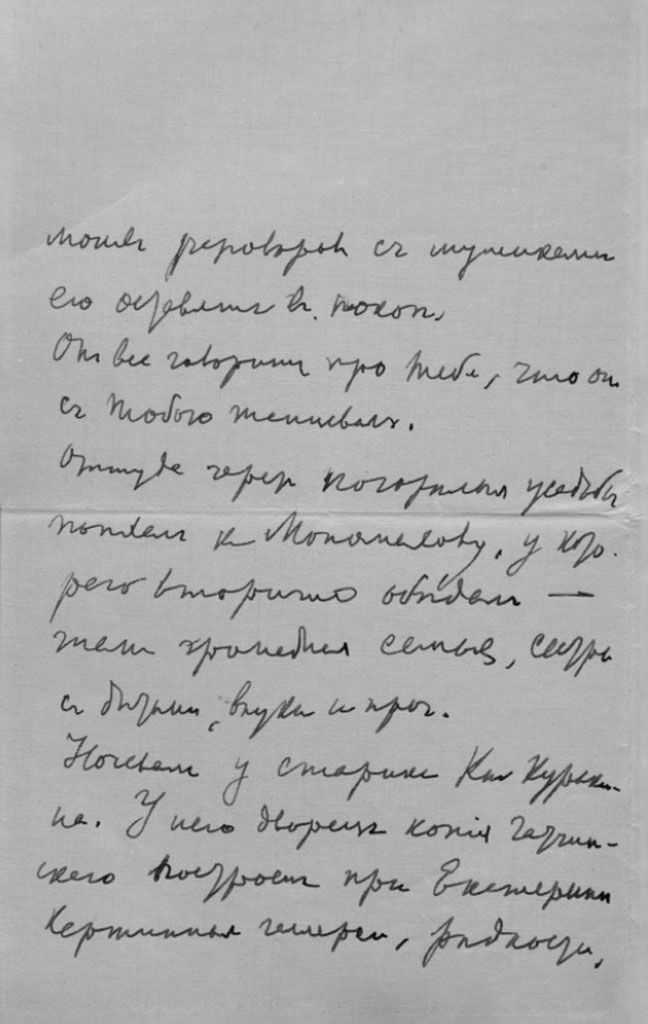 съ мужиками
его оставили въ покоѣ.
Онъ все говорилъ про тебя, что онъ
съ тобою танцевалъ.
Оттуда черезъ усадьбы
поѣхали къ у кото-
раго вторично обѣдали —
тамъ громадная семья, сестры
съ дѣтьми, внуки и проч.
Ночевали у старика Кн Кураки-
на. У него дворецъ копія Гатчин-
скаго построенъ при Екатеринѣ
Картинная галерея, рѣдкости,